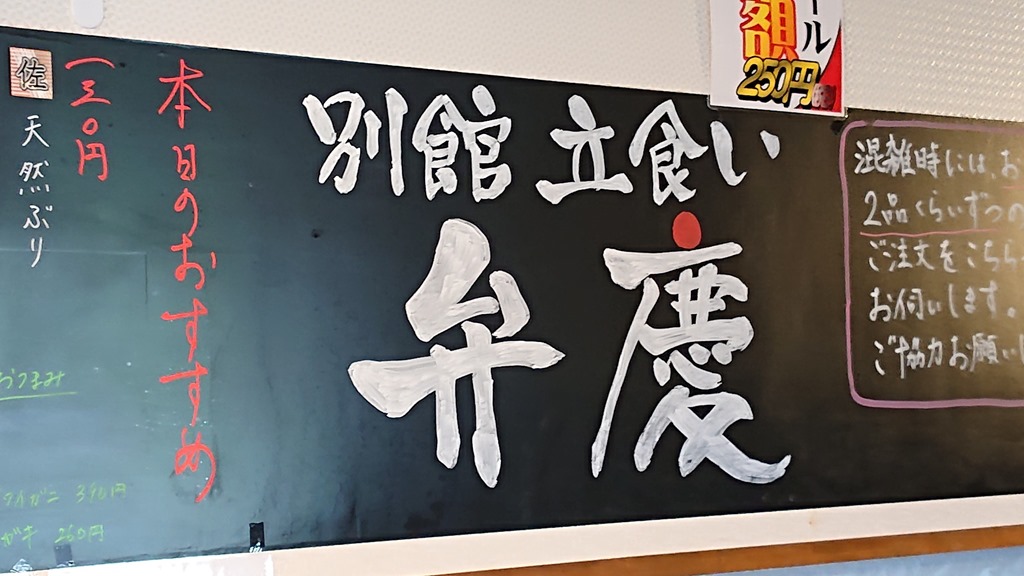 額
ール
250円
別館 立食い
弁慶
混雑時には、お
2品くらいずつの
ご注文をこちら
お伺いします。
ご協力お願い
本日のおすすめ
一三〇円
佐
天然ぶり
おつまみ
390円
ガキ 260円